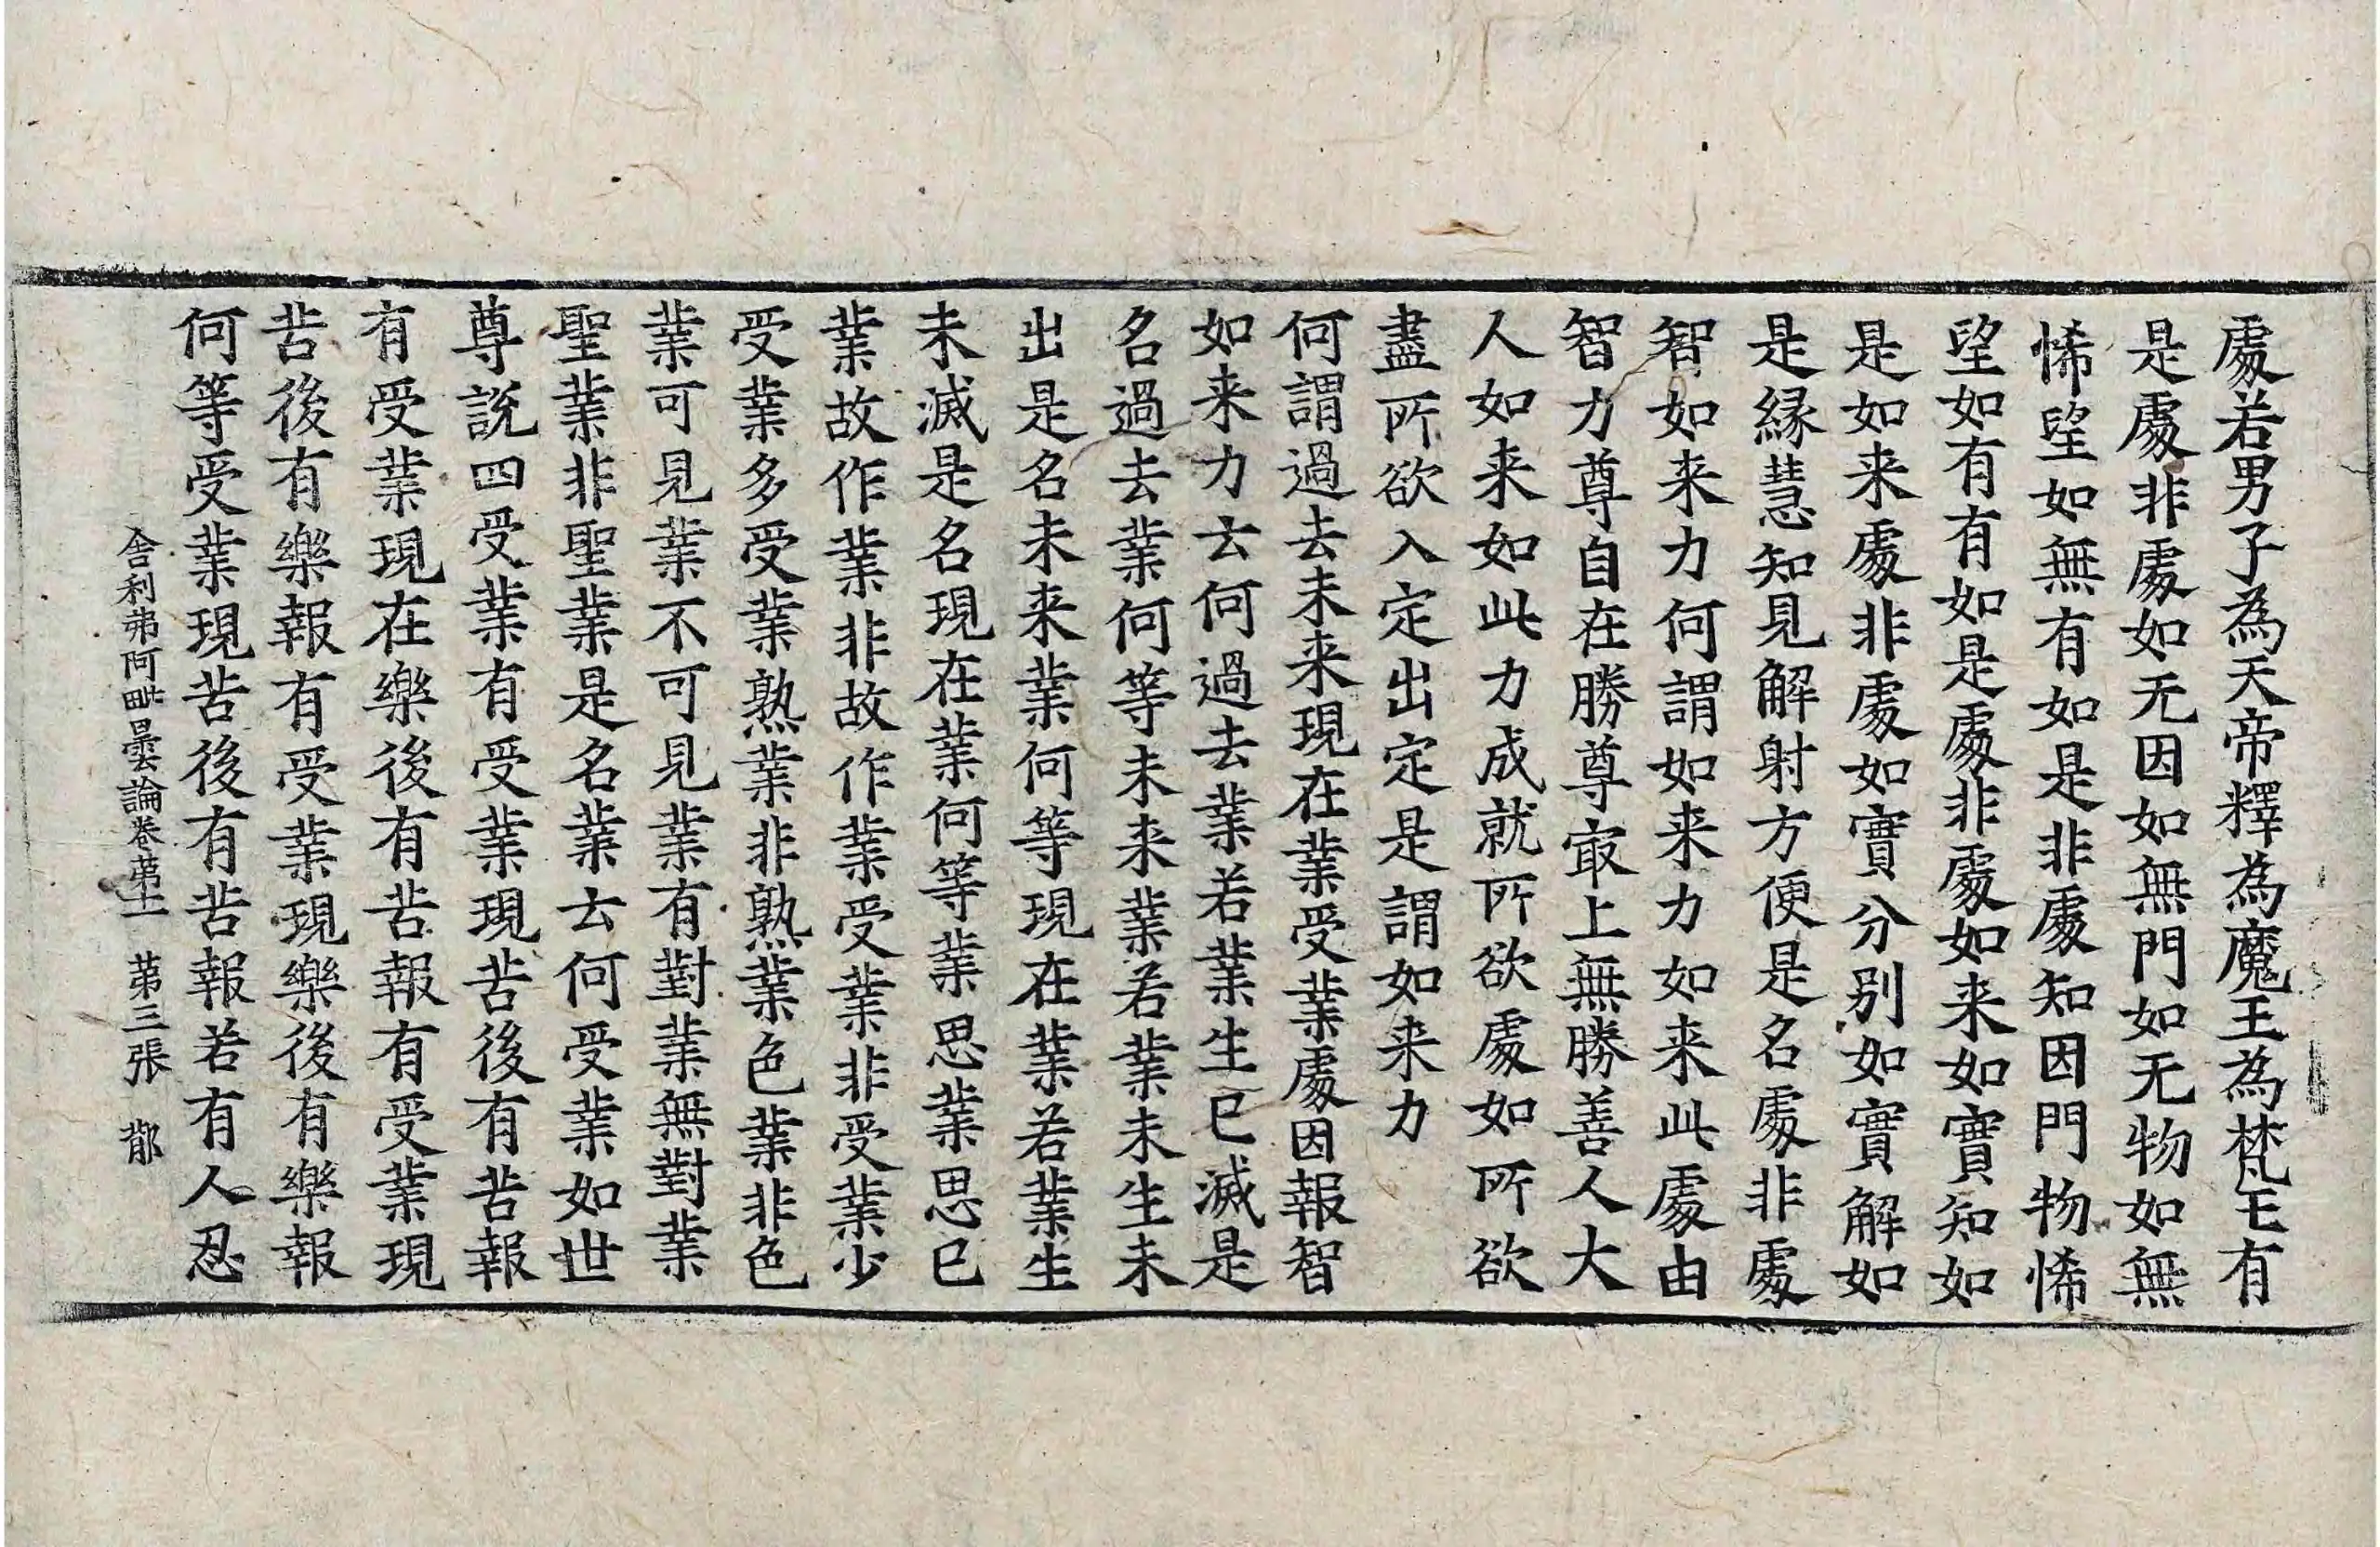 處若男子為天帝釋為魔王為梵王有
是處非處如无因如無門如无物如無
悕望如無有如是非處知因門物悕
望如有有如是處非處如来如實知如
是如来處非處如實分別如實解如
是緣慧知見解射方便是名處非處
智如来力何謂如来力如来此處由
智力尊自在勝尊㝡上無勝善人大
人如来如此力成就所欲處如所欲
盡所欲入定出定是謂如来力
何謂過去未来現在業受業處因報智
如来力云何過去業若業生已滅是
名過去業何等未来業若業未生未
出是名未来業何等現在業若業生
未滅是名現在業何等業思業思已
業故作業非故作業受業非受業少
受業多受業熟業非熟業色業非色
業可見業不可見業有對業無對業
聖業非聖業是名業云何受業如世
尊說四受業有受業現苦後有苦報
有受業現在樂後有苦報有受業現
苦後有樂報有受業現樂後有樂報
何等受業現苦後有苦報若有人忍
舍利弗阿毗曇論卷苐十一 苐三張